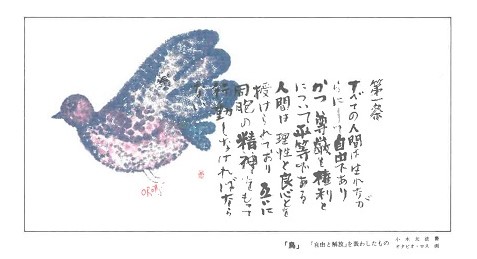 第一条
すべての人間は生れなが
らにして自由であり
かつ尊厳と権利と
について平等である
人間は理性と良心とを
授けられており 互に
同胞の精神をもって
行動しなければなら
ない
「鳥」 「自由と解放」を表わしたもの
小木太法 書
オタビオ・ロス 画